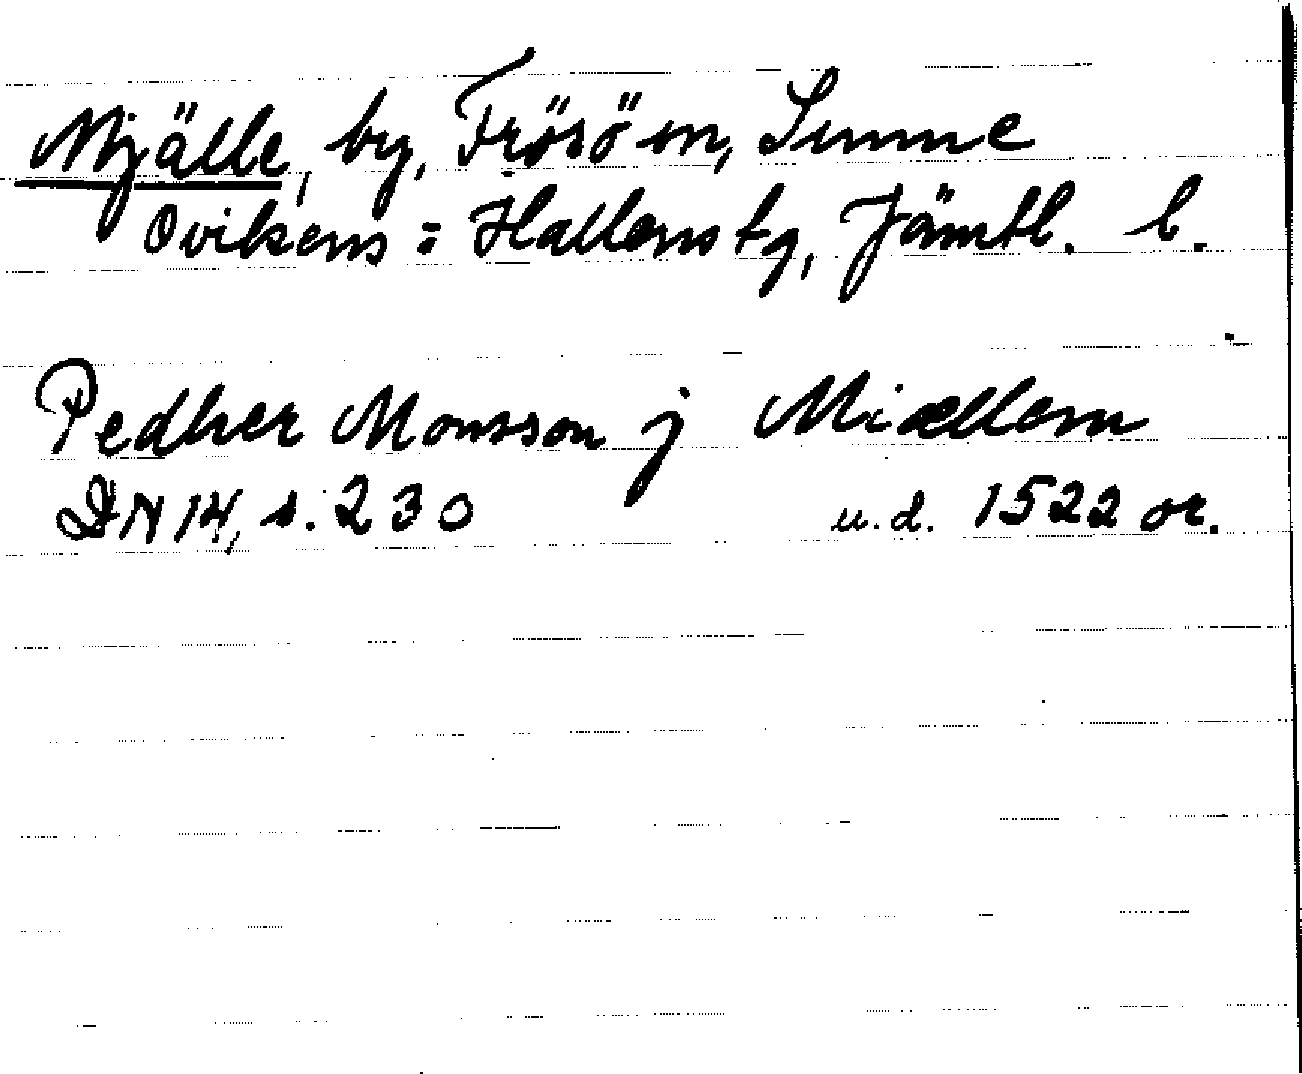 Mjälle, by, Frösön, Sunne
Ovikens = Hallens tg, Jämtl. l.
Pedher Monsson j Miællom
DN 14, s. 230 u.d. 1522 or.